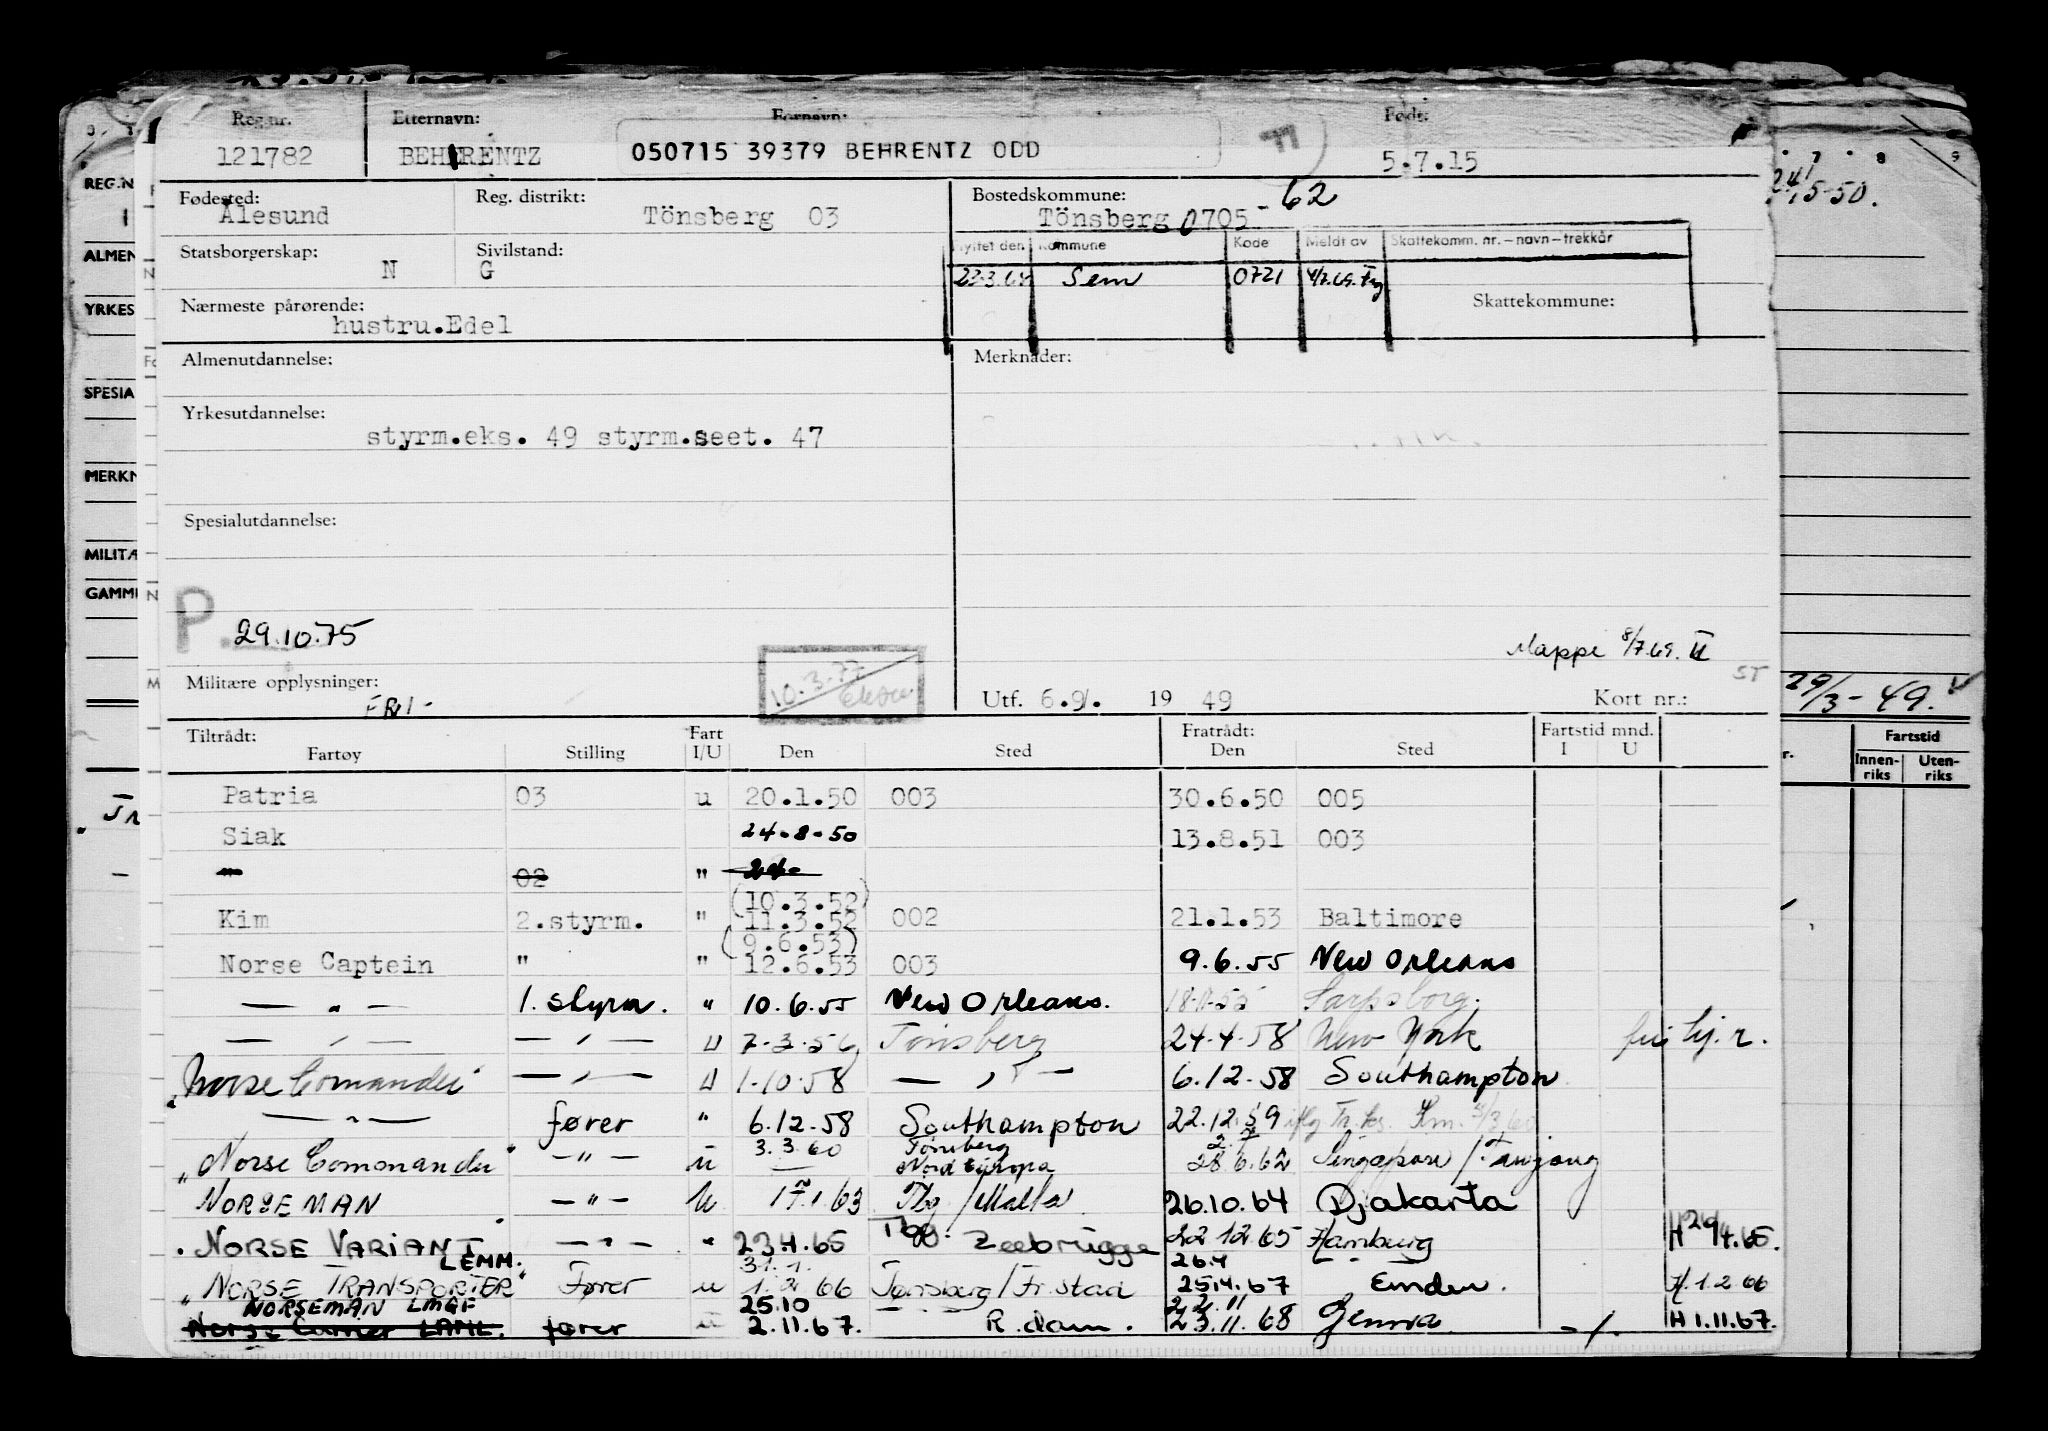 Reg.nr. Etternavn: Fornavn: Født:
121782 BEHRENTZ 050715 39379 BEHRENTZ ODD 77 5.7.15
Fødested: Reg. distrikt: Bostedskommune: 62
Ålesund Tönsberg 03 Tönsberg 0705-
Statsborgerskap: Sivilstand: Flyttet den Kommune Kode Meldt av Skattekomm. nr.-navn-trekkår
N G Sem 0721
Nærmeste pårørende: Skattekommune:
hustru.Edel
Almenutdannelse: Merknader:
Yrkesutdannelse:
styrm.eks. 49 styrm.seet. 47
Spesialutdannelse:
P. 29.10.75
Mappe 8/7.69. II
ST
Militære opplysninger: 10.3.77 Utf. 6.9. 19 49 Kort nr.:
FRI-
Tiltrådt: Fart Fratrådt: Fartstid mnd.
Fartøy Stilling I/U Den Sted Den Sted I U
Patria 03 u 20.1.50 003 30.6.50 005
Siak 24-8-50 13.8.51 003
" 02 "
(10.3.52)
Kim 2.styrm. " 11.3.52 002 21.1.53 Baltimore
(9.6.53)
Norse Captein " " 12.6.53 003 9.6.55 New Orleans
— " — 1. styrm. " 10.6.55 New Orleans. Sarpsborg.
— " — — " — U 7-3-56 Tønsberg 24-4-58 New York hj. r.
"Norse Comander" — " — U 1-10-58 — " — 6.12.58 Southampton
— " — fører " 6.12.58 Southampton 22.12.59
3.3.60 Tønsberg
"Norse Commander" — " — u Nord Europa 28.6.62 Singapore / Tanjong
NORSEMAN — " — U 17.1.63 Tbg / Malta 26.10.64 Djakarta
NORSE VARIANT — " — " 23.4.65 Tbg. Zeebrugge 22.12.65 Hamburg H 29/4.65.
LEMM. 31.1. 26.4
"NORSE TRANSPORTER" Fører u 1.2 66 Tønsberg / Fr.stad 25.4.67 Emden. H. 1.2 66
NORSEMAN LMGF 25.10 22.11
Norse Carrier LAML. fører u 2.11.67. R.dam. 23.11.68 Genova. -/. H 1.11.67.
REG.N
ALMEN
YRKES
SPESIA
MERKN
MILITÆ
GAMM
7 8 9
24/5-50.
29/3-49.
Fartstid
Innen-riks Uten-riks